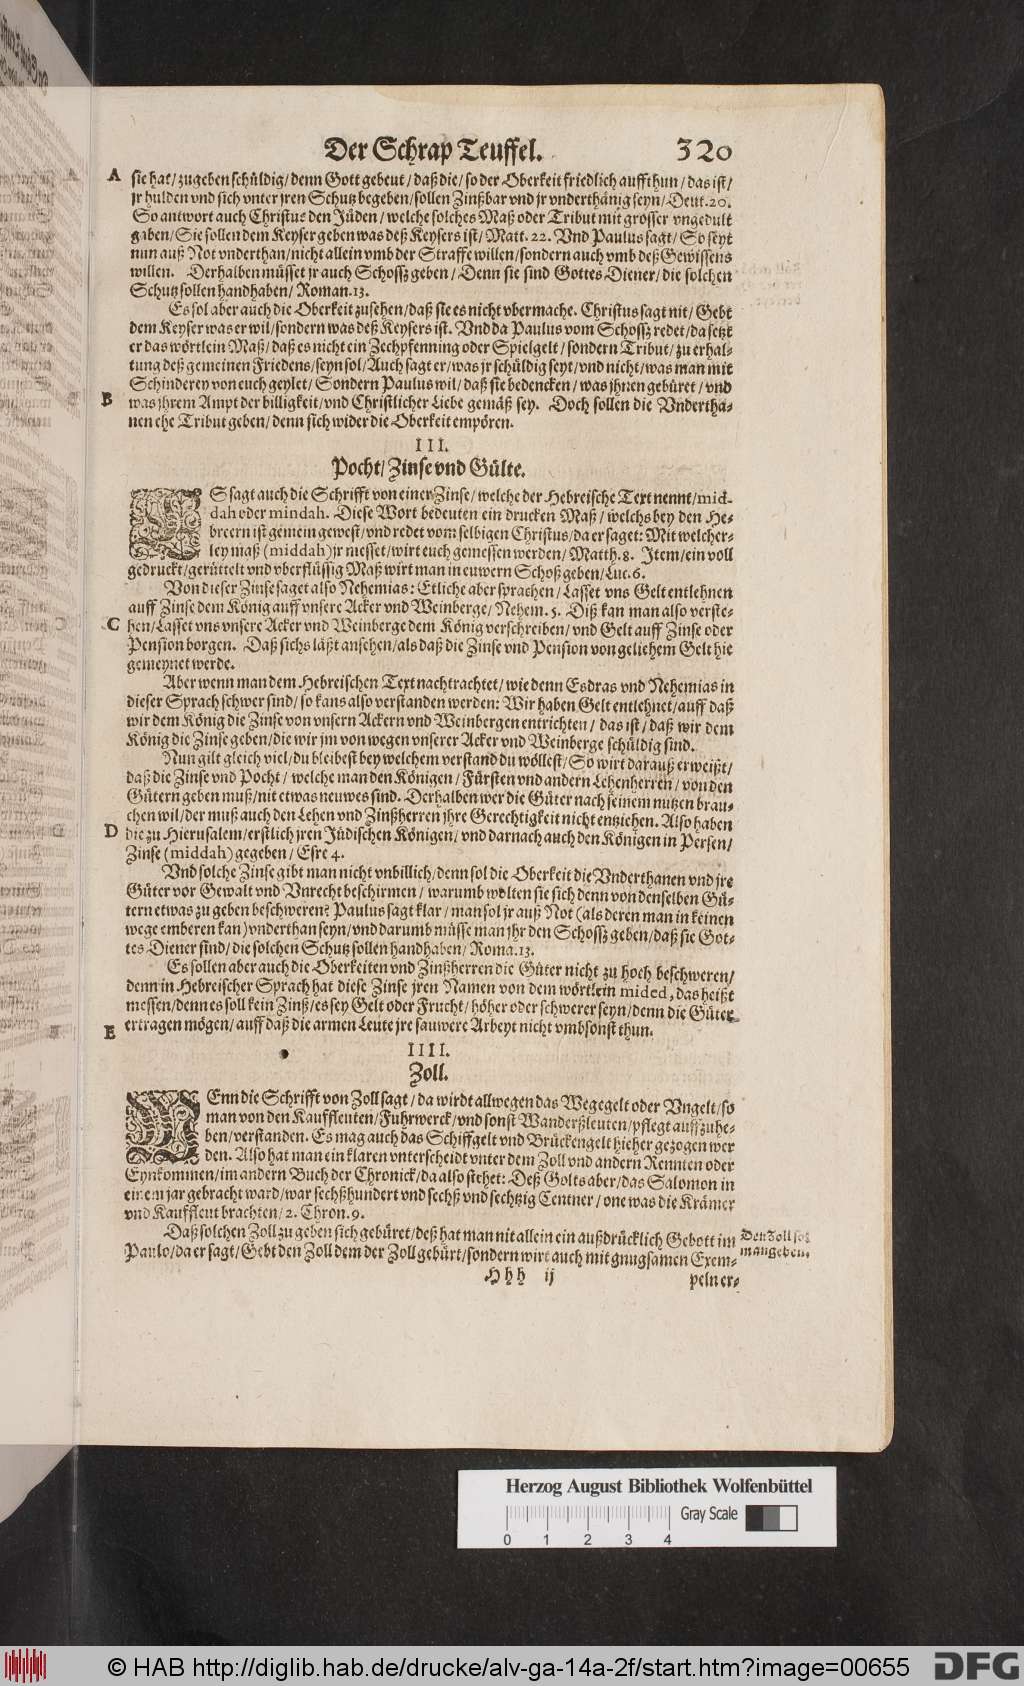 Der Schrap Teuffel. 320
A sie hat/zugeben schüldig/denn Gott gebeut/daß die/so der Oberkeit friedlich auffthun/das ist/
jr hulden vnd sich vnter jren Schutz begeben/sollen Zinßbar vnd jr vnderthänig seyn/Deut.20.
So antwort auch Christus den Jüden/welche solches Maß oder Tribut mit grosser vngedult
gaben/Sie sollen dem Keyser geben was deß Keysers ist/Matt. 22. Vnd Paulus sagt/So seyt
nun auß Not vnderthan/nicht allein vmb der Straffe willen/sondern auch vmb deß Gewissens
willen. Derhalben müsset jr auch Schossz geben/Denn sie sind Gottes Diener/die solchen
Schutz sollen handhaben/Roman.13.
Es sol aber auch die Oberkeit zusehen/daß sie es nicht vbermache. Christus sagt nit/Gebt
dem Keyser was er wil/sondern was deß Keysers ist. Vnd da Paulus vom Schossz redet/da setzt
er das wörtlein Maß/daß es nicht ein Zechpfenning oder Spielgelt/sondern Tribut/zu erhal-
tung deß gemeinen Friedens/seyn sol/Auch sagt er/was jr schüldig seyt/vnd nicht/was man mit
Schinderey von euch geylet/Sondern Paulus wil/daß sie bedencken/was jhnen gebüret/vnd
B was jhrem Ampt der billigkeit/vnd Christlicher Liebe gemäß sey. Doch sollen die Vndertha-
nen ehe Tribut geben/denn sich wider die Oberkeit empören.
III.
Pocht/Zinse vnd Gülte.
ES sagt auch die Schrifft von einer Zinse/welche der Hebreische Text nennt/mid-
dah oder mindah. Diese Wort bedeuten ein drucken Maß/welchs bey den He-
breern ist gemein gewest/vnd redet vom selbigen Christus/da er saget: Mit welcher-
ley maß (middah) jr messet/wirt euch gemessen werden/Matth.8. Item/ein voll
gedruckt/gerüttelt vnd vberflüssig Maß wirt man in euwern Schoß geben/Luc.6.
Von dieser Zinse saget also Nehemias: Etliche aber sprachen/Lasset vns Gelt entlehnen
auff Zinse dem König auff vnsere Acker vnd Weinberge/Nehem.5. Diß kan man also verste-
C hen/Lasset vns vnsere Acker vnd Weinberge dem König verschreiben/vnd Gelt auff Zinse oder
Pension borgen. Daß sichs läßt ansehen/als daß die Zinse vnd Pension von geliehem Gelt hie
gemeynet werde.
Aber wenn man dem Hebreischen Text nachtrachtet/wie denn Esdras vnd Nehemias in
dieser Sprach schwer sind/so kans also verstanden werden: Wir haben Gelt entlehnet/auff daß
wir dem König die Zinse von vnsern Ackern vnd Weinbergen entrichten/das ist/daß wir dem
König die Zinse geben/die wir jm von wegen vnserer Acker vnd Weinberge schüldig sind.
Nun gilt gleich viel/du bleibest bey welchem verstand du wöllest/So wirt darauß erweißt/
daß die Zinse vnd Pocht/welche man den Königen/Fürsten vnd andern Lehenherren/von den
Gütern geben muß/nit etwas neuwes sind. Derhalben wer die Güter nach seinem nutzen brau-
chen wil/der muß auch den Lehen vnd Zinßherren jhre Gerechtigkeit nicht enziehen. Also haben
D die zu Hierusalem/erstlich jren Jüdischen Königen/vnd darnach auch den Königen in Persen/
Zinse (middah) gegeben/Esre 4.
Vnd solche Zinse gibt man nicht vnbillich/denn sol die Oberkeit die Vnderthanen vnd jre
Güter vor Gewalt vnd Vnrecht beschirmen/warumb wolten sie sich denn von denselben Gü-
tern etwas zu geben beschweren? Paulus sagt klar/man sol jr auß Not (als deren man in keinen
wege emberen kan) vnderthan seyn/vnd darumb müsse man jhr den Schossz geben/daß sie Got-
tes Diener sind/die solchen Schutz sollen handhaben/Roma.13.
Es sollen aber auch die Oberkeiten vnd Zinßherren die Güter nicht zu hoch beschweren/
denn in Hebreischer Sprach hat diese Zinse jren Namen von dem wörtlein mided, das heißt
messen/denn es soll kein Zinß/es sey Gelt oder Frucht/höher oder schwerer seyn/denn die Güter
E ertragen mögen/auff daß die armen Leute jre sauwere Arbeyt nicht vmbsonst thun.
IIII.
Zoll.
WEnn die Schrifft von Zoll sagt/da wirdt allwegen das Wegegelt oder Vngelt/so
man von den Kauffleuten/Fuhrwerck/vnd sonst Wanderßleuten/pflegt auffzuhe-
ben/verstanden. Es mag auch das Schiffgelt vnd Brückengelt hieher gezogen wer
den. Also hat man ein klaren vnterscheidt vnter dem Zoll vnd andern Rennten oder
Eynkommen/im andern Buch der Chronick/da also stehet: Deß Golts aber/das Salomon in
einem jar gebracht ward/war sechßhundert vnd sechß vnd sechtzig Centner/one was die Krämer
vnd Kauffleut brachten/2. Chron.9.
Daß solchen Zoll zu geben sich gebüret/deß hat man nit allein ein außdrücklich Gebott im
Paulo/da er sagt/Gebt den Zoll dem der Zoll gebürt/sondern wirt auch mit gnugsamen Exem-
Den Zoll sol
man geben.
Hhh ij peln er-
Herzog August Bibliothek Wolfenbüttel
Gray Scale
0 1 2 3 4
© HAB http://diglib.hab.de/drucke/alv-ga-14a-2f/start.htm?image=00655
DFG